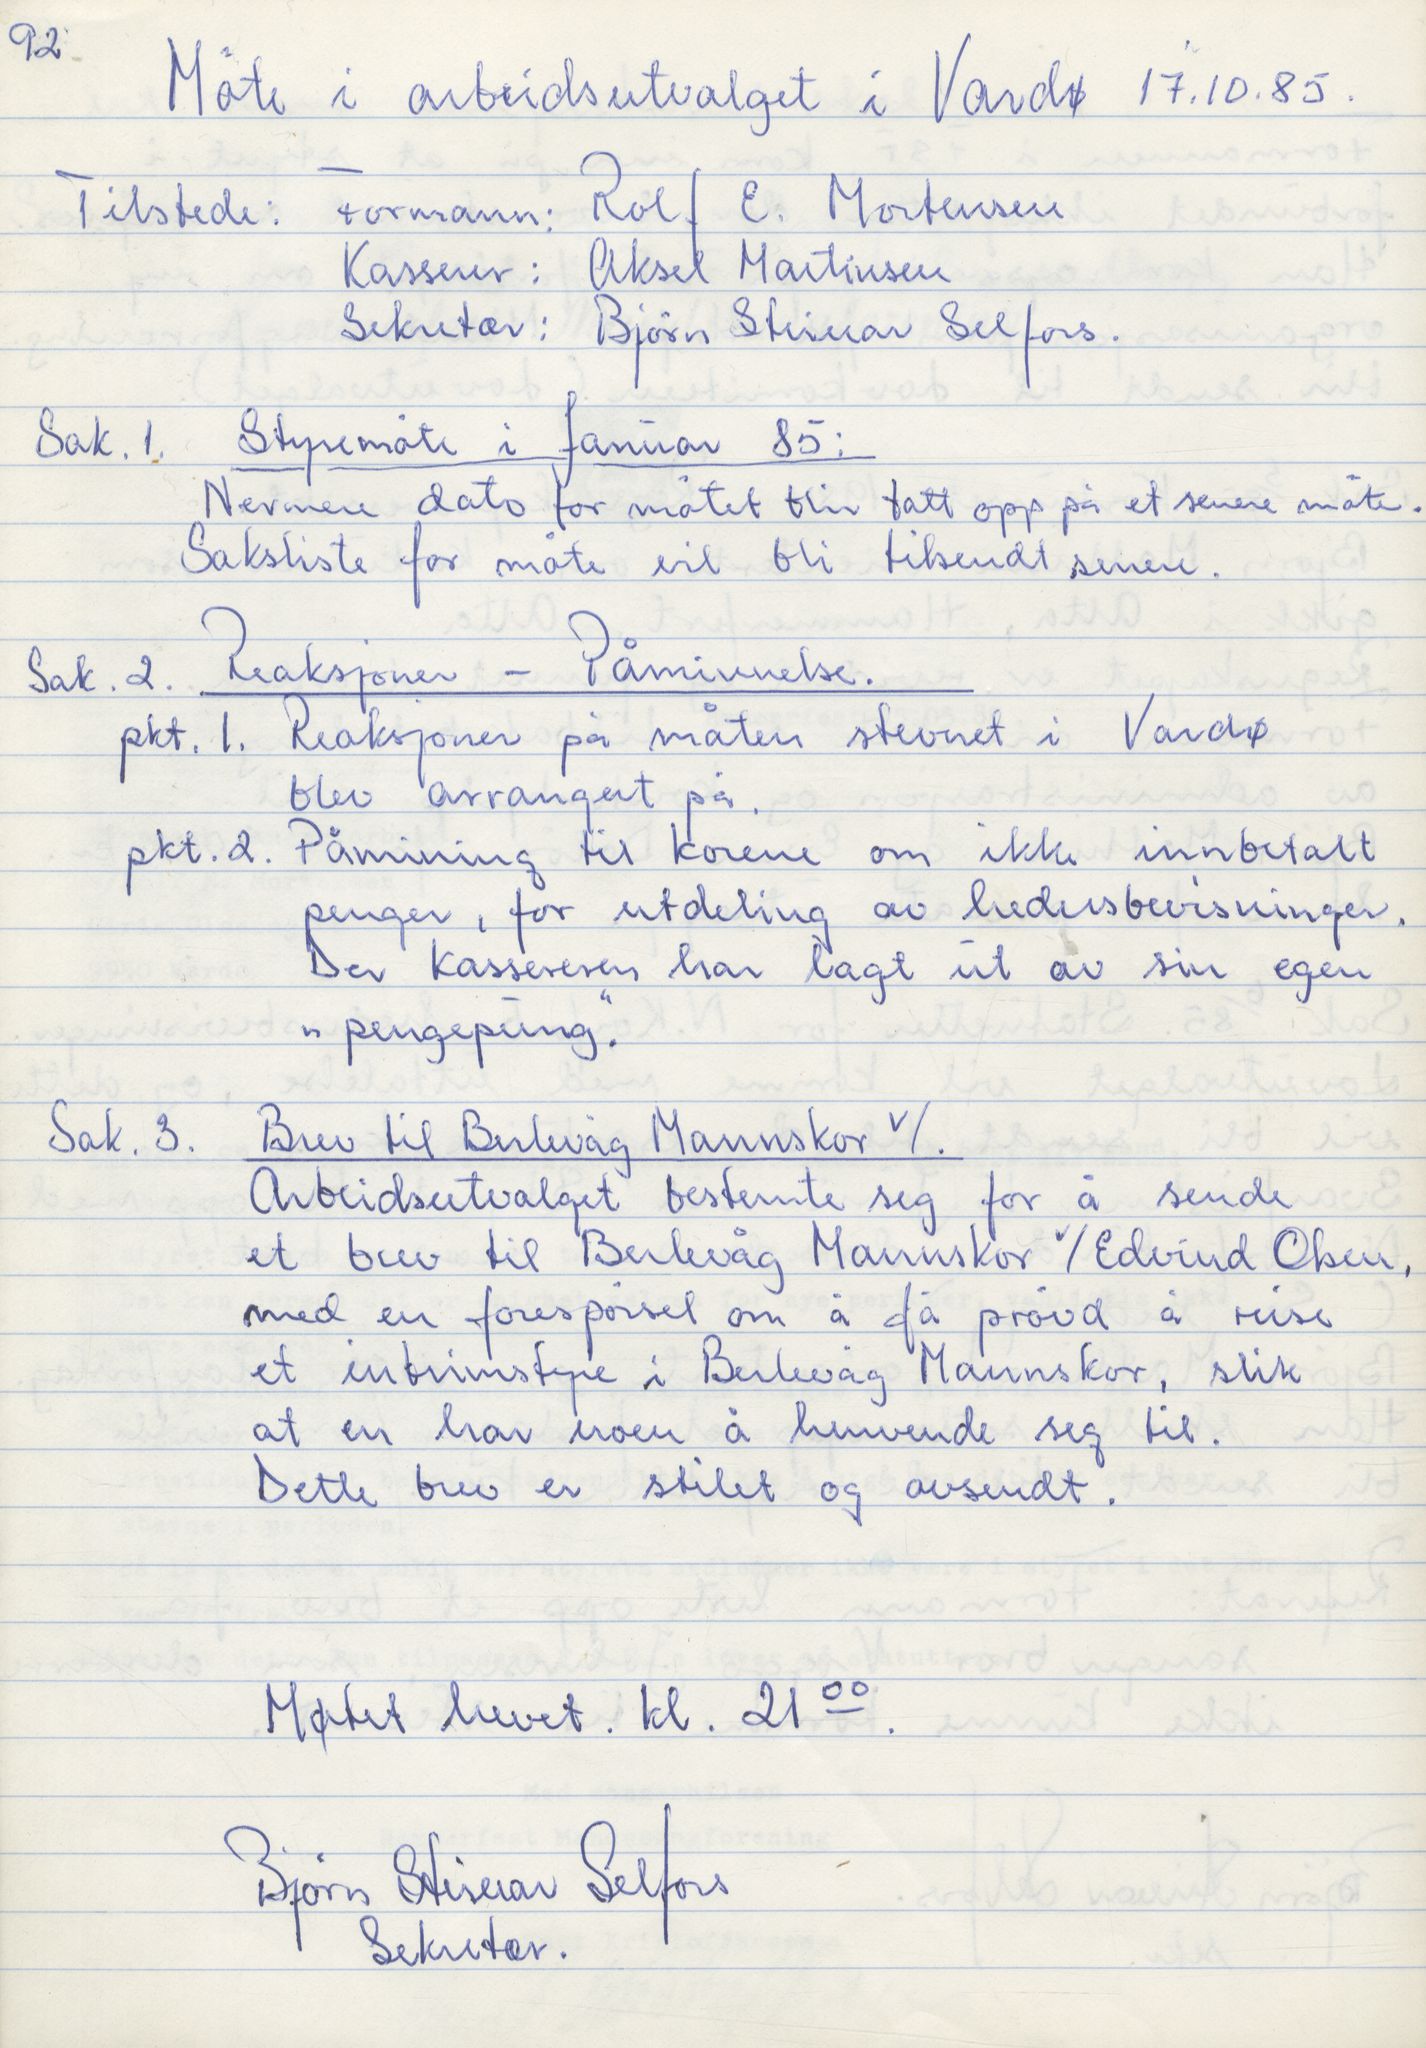 92
Möte i arbeidsutvalget i Vardø 17.10.85.
Tilstede: Formann: Rolf E. Mortensen
Kasserer: Aksel Martinsen
Sekretær: Björn Steinar Selfors.
Sak. 1. Styremöte i Januar 85:
Nermere dato for mötet blir tatt opp på et senere möte.
Saksliste for möte vil bli tilsendt senere.
Sak. 2. Reaksjoner - Påminnelse.
pkt. 1. Reaksjoner på måten stevnet i Vardø
blev arrangert på.
pkt. 2. Påmining til korene om ikke innbetalt
penger, for utdeling av hedersbevisninger.
Der kassereren har lagt ut av sin egen
"pengepung".
Sak. 3. Brev til Berlevåg Mannskor v/.
Arbeidsutvalget bestemte seg for å sende
et brev til Berlevåg Mannskor v/Edvind Olsen,
med en forespörsel om å få prövd å reise
et intrimstyre i Berlevåg Mannskor, slik
at en har noen å henvende seg til.
Dette brev er stilet og avsendt.
Møtet hevet. kl. 21 00.
Björn Steinar Selfors
Sekretær.